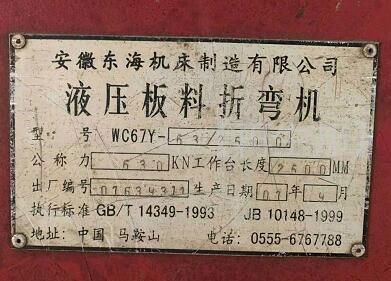 安徽东海机床制造有限公司
液压板料折弯机
型 号 WC67Y-63/2500
公称力 630 KN工作台长度 2500 MM
出厂编号 生产日期 07 年 4 月
执行标准 GB/T 14349-1993 JB 10148-1999
地址: 中国 马鞍山 电话: 0555-6767788